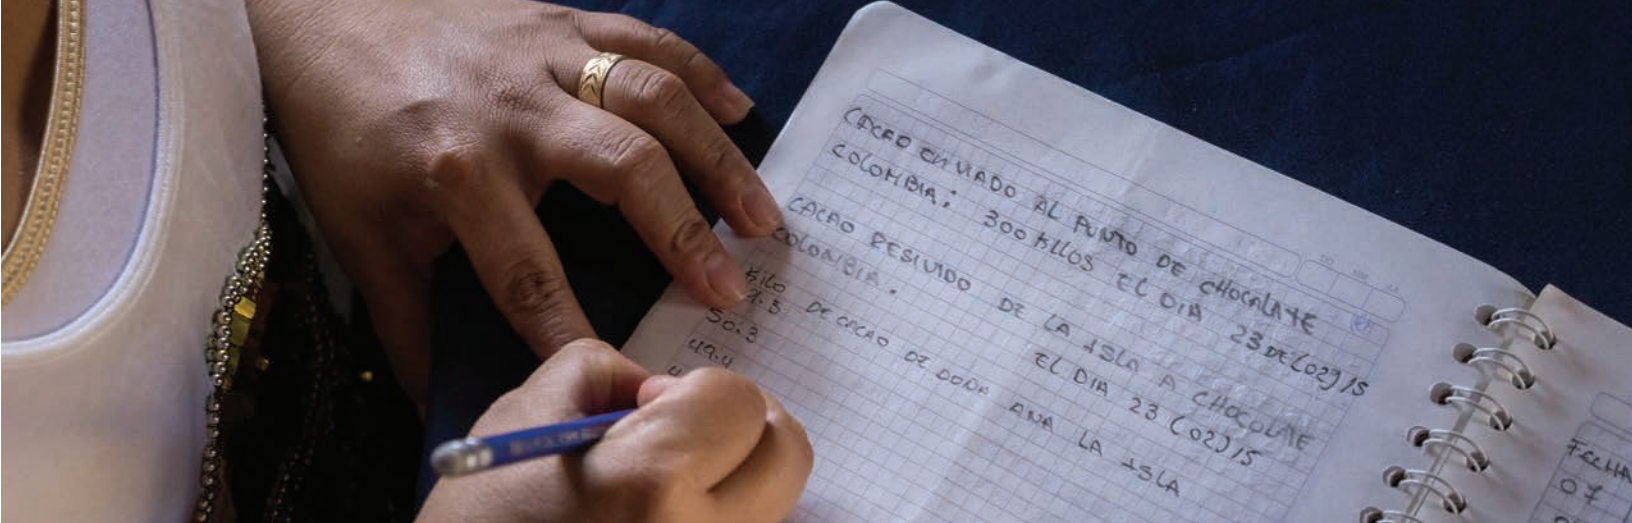 CACAO ENVIADO AL PUNTO DE CHOCALATE
COLOMBIA: 300 KLLOS EL DIA 23 DE (02) 15
CACAO RESIVIDO DE LA ISLA A CHOCOLATE
COLOMBIA. EL DIA 23 (02) 15
KILO DE CACAO DE DOÑA ANA LA ISLA
50.3
49.4
FECHA
07